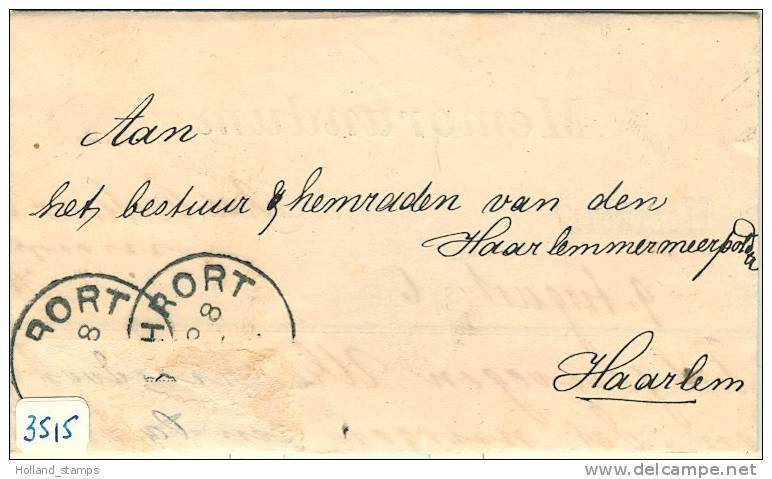 Memorandum
Aan
het bestuur & hemraden van den
Haarlemmermeerpolder
RORT 8
HRORT 8
Haarlem
3515
Holland_stamps
delcampe.net